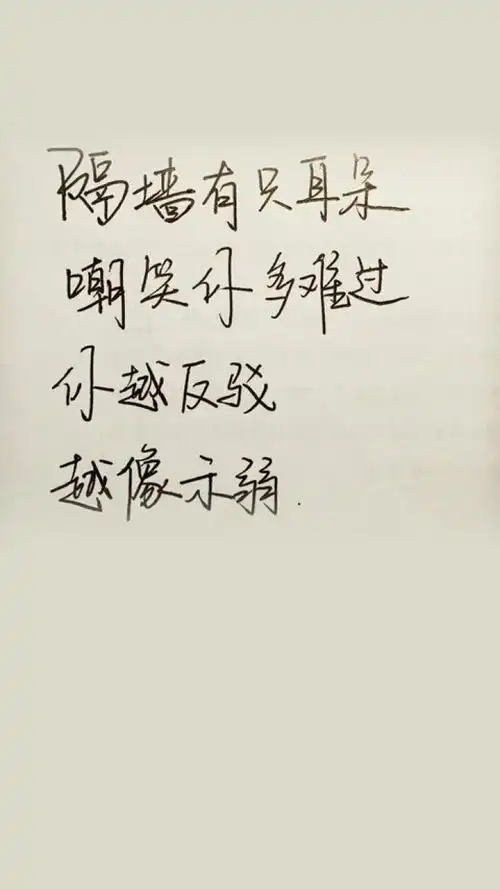 隔墙有只耳朵
嘲笑你多难过
你越反驳
越像示弱.